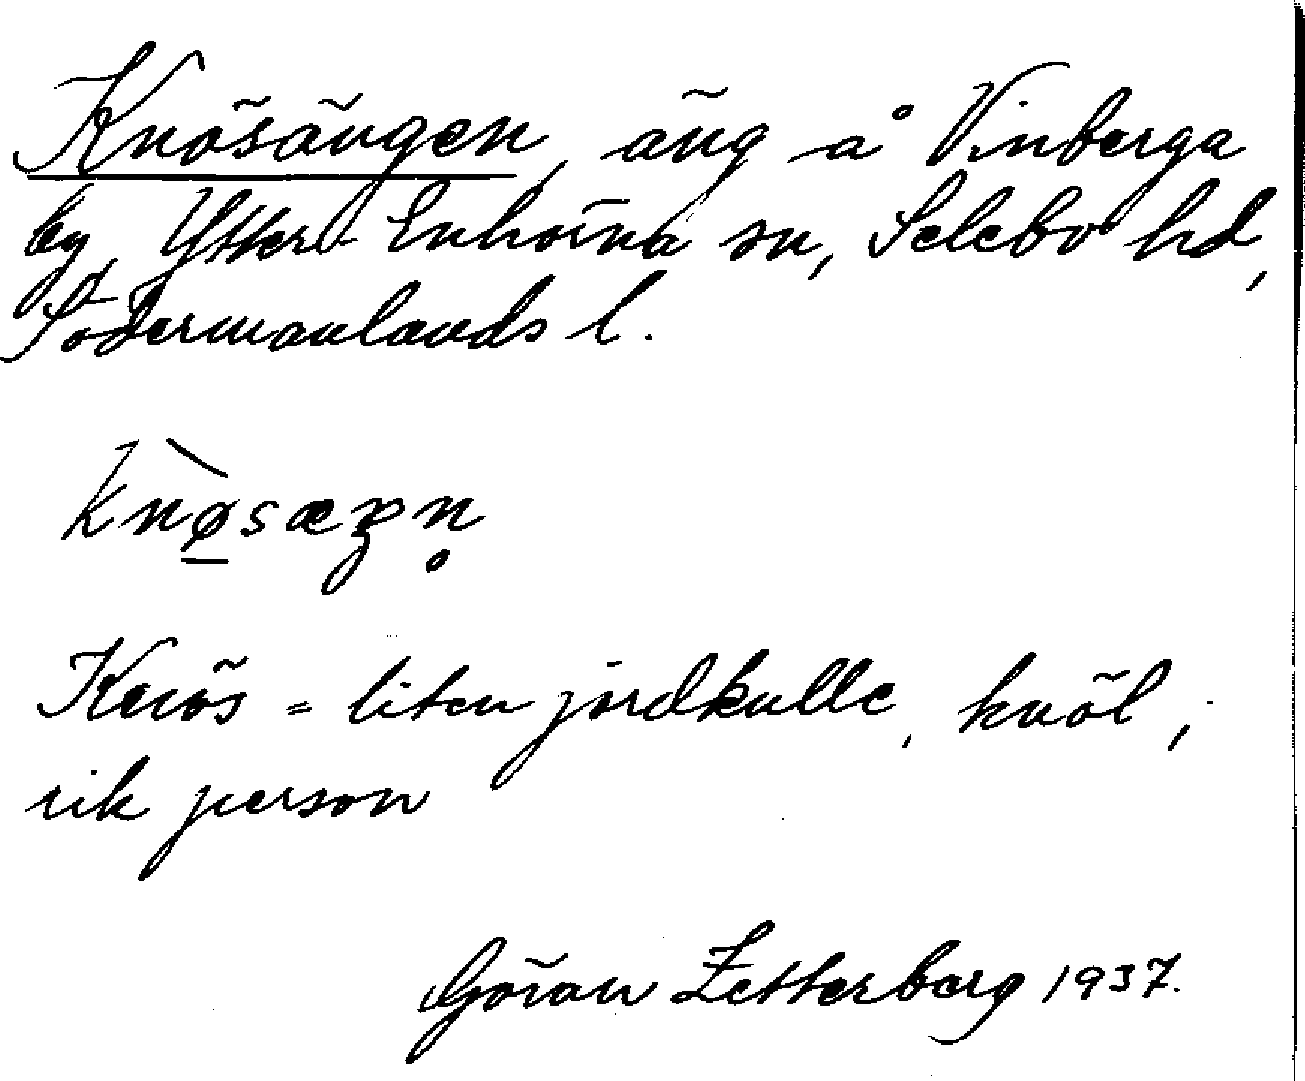 Knösängen, äng å Vinberga
by, Ytter-Enhörna sn, Selebo hd,
Södermanlands l.
knø̀sæŋn̥
Knös = liten jordkulle, knöl,
rik person
Göran Zetterberg 1937.